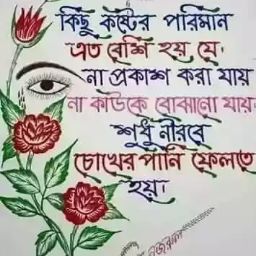 কিছু কষ্টের পরিমান
এত বেশি হয় যে.
না প্রকাশ করা যায়
না কাউকে বোঝানো যায়.
শুধু নীরবে
চোখের পানি ফেলতে
হয়।
নজরুল